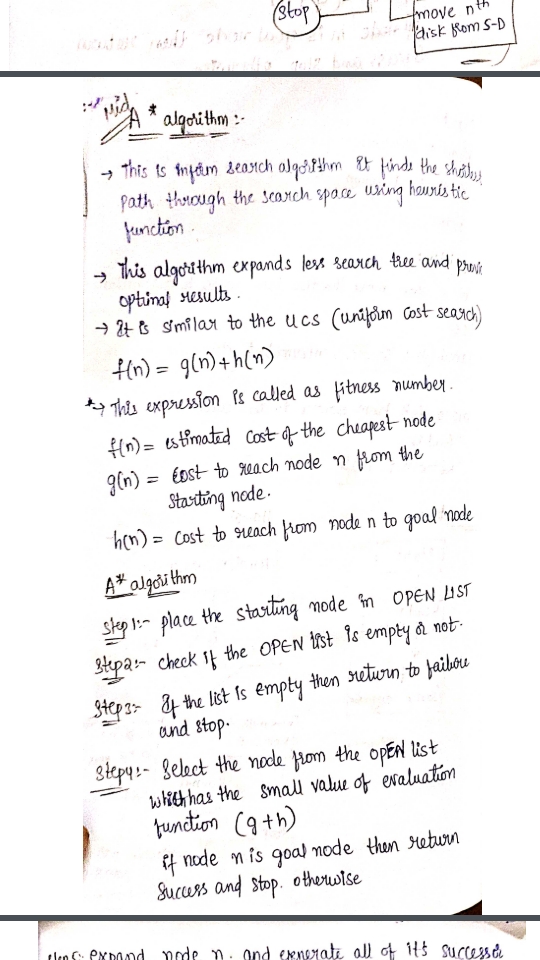 Stop
move nth
disk from S-D
:- Mid
A* algorithm :-
→ This is inform search algorithm It finds the
path through the search space using heuristic
function.
→ This algorithm expands less search tree and
optimal results.
→ It is similar to the UCS (uniform cost search)
f(n) = g(n)+h(n)
*→ This expression is called as fitness number.
f(n) = estimated cost of the cheapest node
g(n) = cost to reach node n from the
Starting node.
h(n) = cost to reach from node n to goal node
A* algorithm
Step1:- place the starting node in OPEN LIST
Step2:- check if the OPEN list is empty or not.
Step3:- If the list is empty then return to failou
and stop.
Step4:- Select the node from the OPEN list
which has the small value of evaluation
function (g+h)
if node n is goal node then return
Success and stop. otherwise
expand node n. and generate all of its